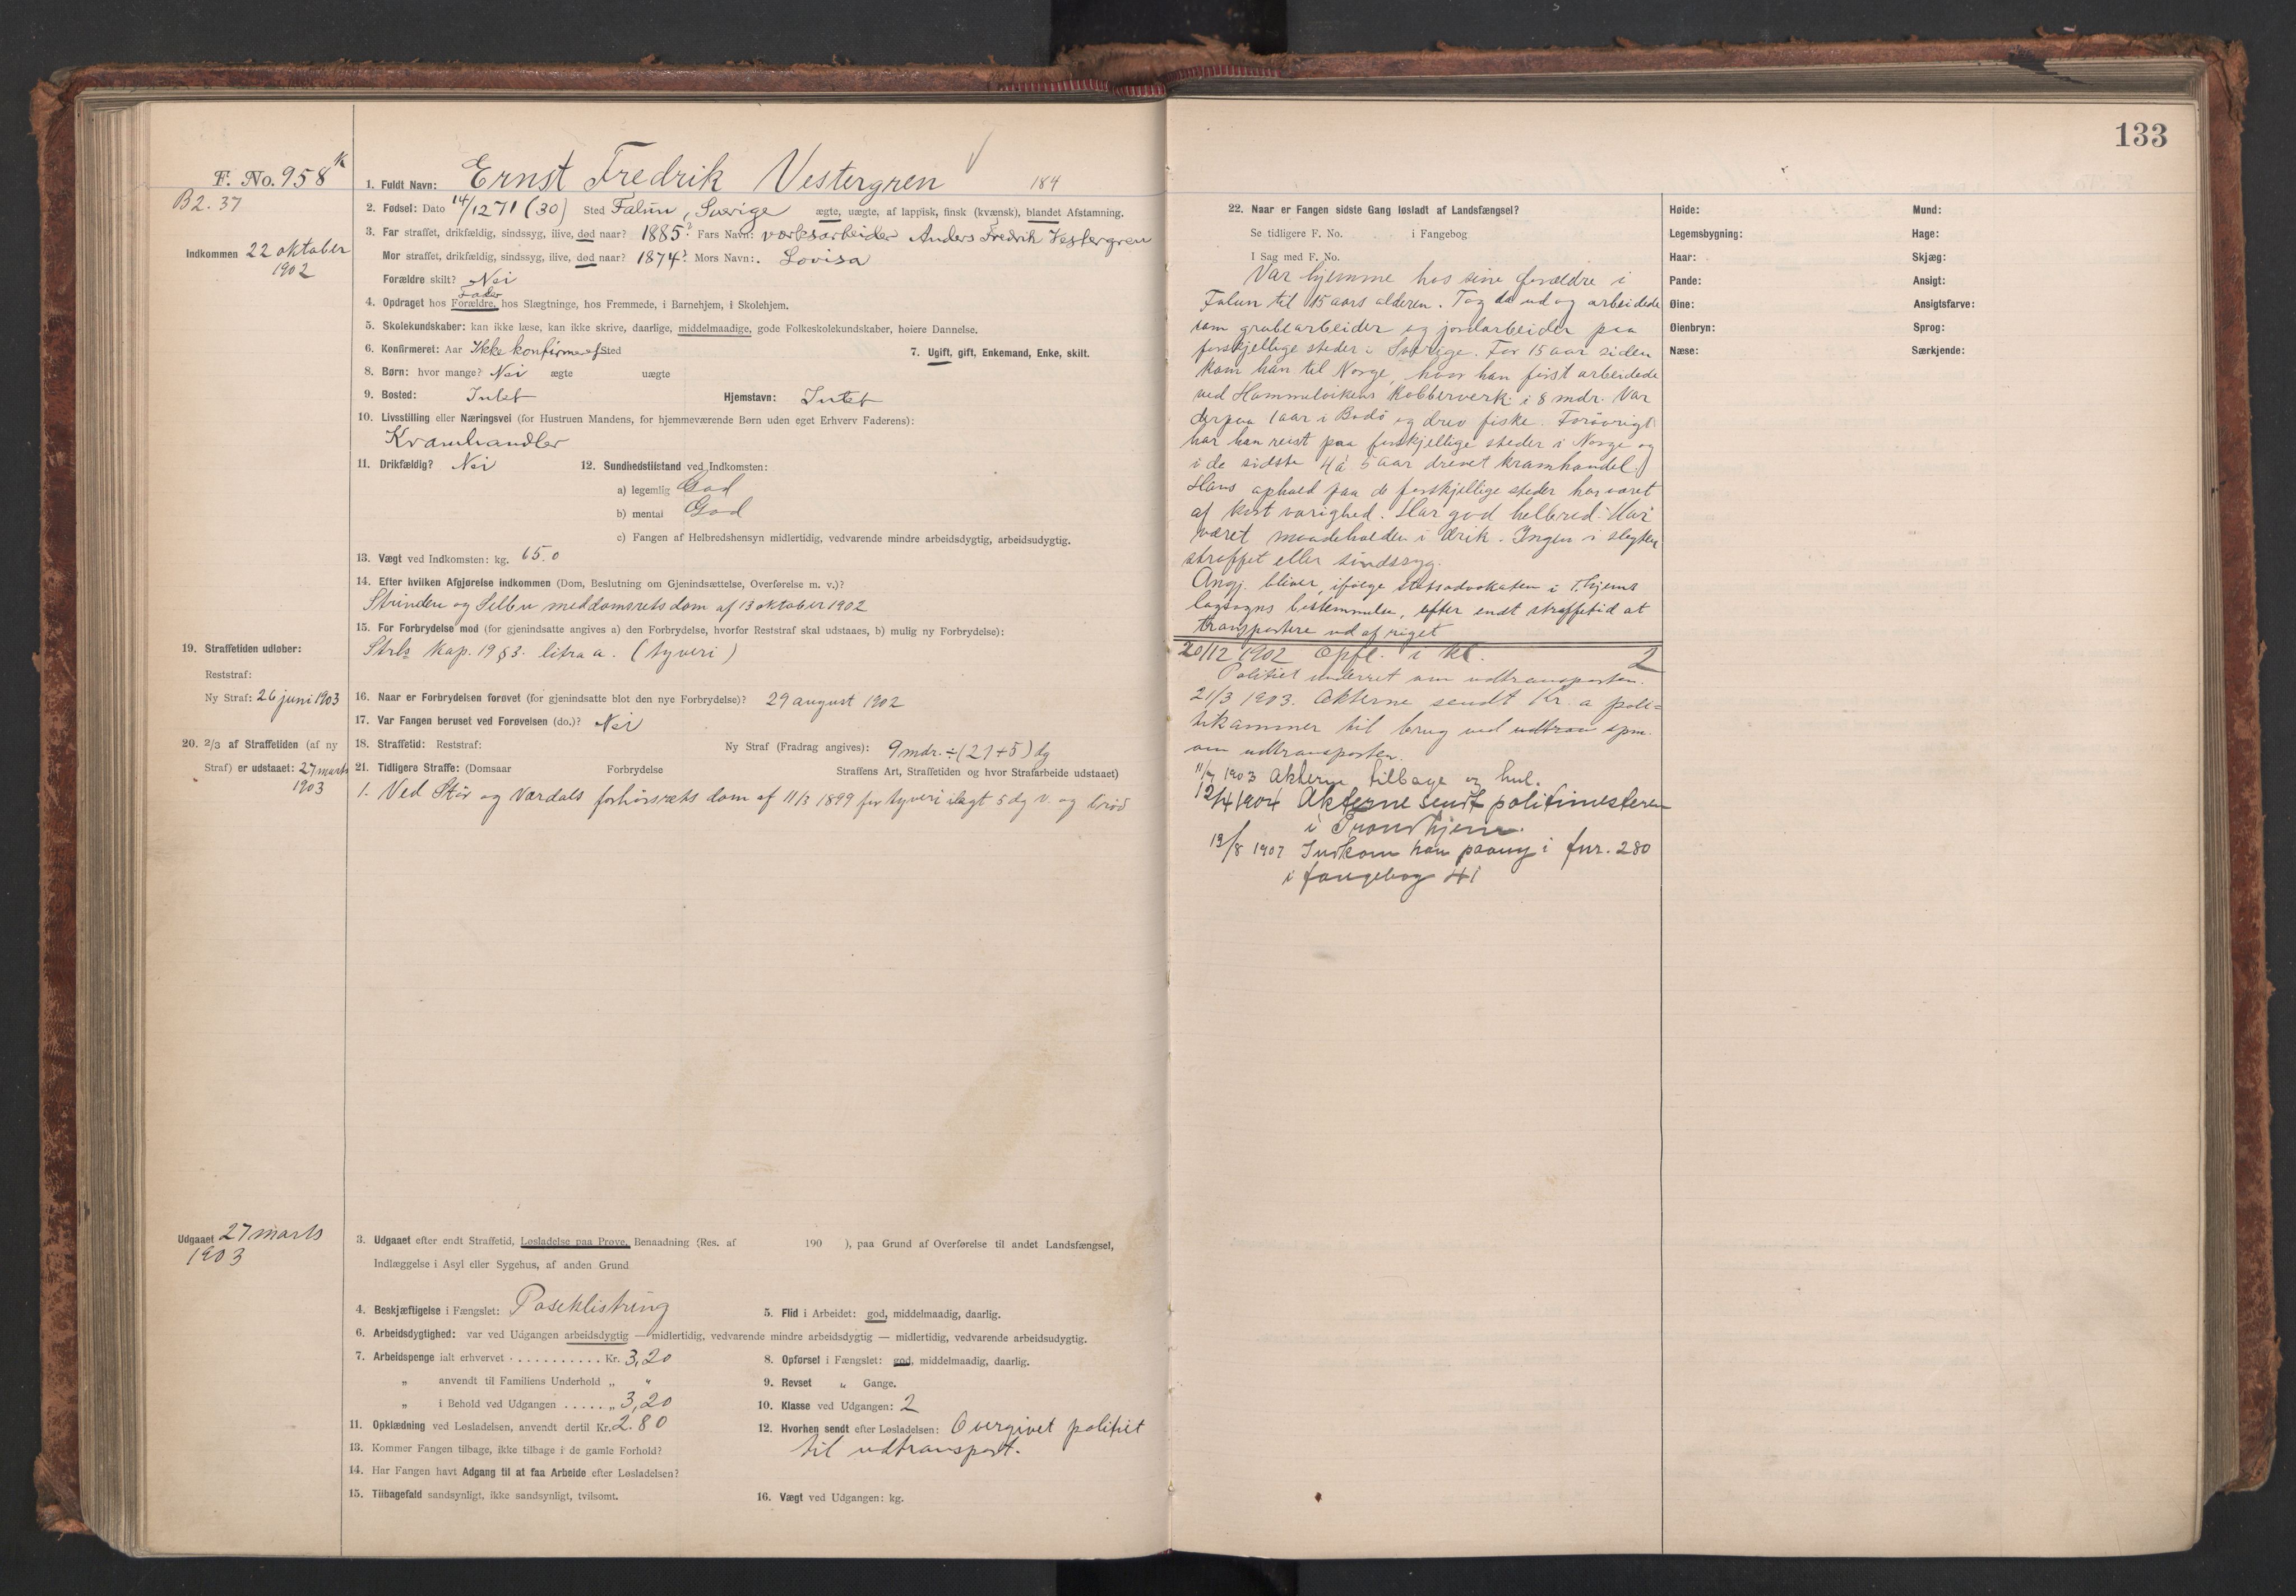 133
F. No. 958 K
B2. 37
Indkommen 22 oktober
1902
1. Fuldt Navn: Ernst Fredrik Vestergren 184
2. Fødsel: Dato 14/12 71 (30) Sted Falun, Sverige ægte, uægte, af lappisk, finsk (kvænsk), blandet Afstamning.
3. Far straffet, drikfældig, sindssyg, ilive, død naar? 1885? Fars Navn: værksarbeider Anders Fredrik Vestergren
Mor straffet, drikfældig, sindssyg, ilive, død naar? 1874? Mors Navn: Lovisa
Forældre skilt? Nei
Fader
4. Opdraget hos Forældre, hos Slægtninge, hos Fremmede, i Barnehjem, i Skolehjem.
5. Skolekundskaber: kan ikke læse, kan ikke skrive, daarlige, middelmaadige, gode Folkeskolekundskaber, høiere Dannelse.
6. Konfirmeret: Aar Ikke konfirmeret Sted 7. Ugift, gift, Enkemand, Enke, skilt.
8. Børn: hvor mange? Nei ægte uægte
9. Bosted: Intet Hjemstavn: Intet
10. Livsstilling eller Næringsvei (for Hustruen Mandens, for hjemmeværende Børn uden eget Erhverv Faderens):
Kramhandler
11. Drikfældig? Nei 12. Sundhedstilstand ved Indkomsten:
a) legemlig God
b) mental God
c) Fangen af Helbredshensyn midlertidig, vedvarende mindre arbeidsdygtig, arbeidsudygtig.
13. Vægt ved Indkomsten: kg. 65.0
14. Efter hvilken Afgjørelse indkommen (Dom, Beslutning om Gjenindsættelse, Overførelse m. v.)?
Strinden og Selbu meddomsrets dom af 13 oktober 1902
15. For Forbrydelse mod (for gjenindsatte angives a) den Forbrydelse, hvorfor Reststraf skal udstaaes, b) mulig ny Forbrydelse):
Strls kap. 19 § 3. litra a. (tyveri)
19. Straffetiden udløber:
Reststraf:
Ny Straf: 26 juni 1903
16. Naar er Forbrydelsen forøvet (for gjenindsatte blot den nye Forbrydelse)? 29 august 1902
17. Var Fangen beruset ved Forøvelsen (do.)? Nei
20. 2/3 af Straffetiden (af ny
Straf) er udstaaet: 27 marts
1903
18. Straffetid: Reststraf: Ny Straf (Fradrag angives): 9 mdr. ÷ (21+5) dg
21. Tidligere Straffe: (Domsaar Forbrydelse Straffens Art, Straffetiden og hvor Strafarbeide udstaaet)
1. Ved Stör og Værdals forhörsrets dom af 11/3 1899 for tyveri ilagt 5 dg v. og bröd
Udgaaet 27 marts
1903
3. Udgaaet efter endt Straffetid, Løsladelse paa Prøve, Benaadning (Res. af 190 ), paa Grund af Overførelse til andet Landsfængsel,
Indlæggelse i Asyl eller Sygehus, af anden Grund
4. Beskjæftigelse i Fængslet: Poseklistring 5. Flid i Arbeidet: god, middelmaadig, daarlig.
6. Arbeidsdygtighed: var ved Udgangen arbeidsdygtig — midlertidig, vedvarende mindre arbeidsdygtig — midlertidig, vedvarende arbeidsudygtig.
7. Arbeidspenge ialt erhvervet . . . . . . . . . . . Kr. 3,20 8. Opførsel i Fængslet: god, middelmaadig, daarlig.
„ anvendt til Familiens Underhold „ „ 9. Revset „ Gange.
„ i Behold ved Udgangen . . . . . „ 3,20 10. Klasse ved Udgangen: 2
11. Opklædning ved Løsladelsen, anvendt dertil Kr. 2.80 12. Hvorhen sendt efter Løsladelsen: Overgivet politiet
til udtransport.
13. Kommer Fangen tilbage, ikke tilbage i de gamle Forhold?
14. Har Fangen havt Adgang til at faa Arbeide efter Løsladelsen?
15. Tilbagefald sandsynligt, ikke sandsynligt, tvilsomt. 16. Vægt ved Udgangen: kg.
22. Naar er Fangen sidste Gang løsladt af Landsfængsel?
Se tidligere F. No. i Fangebog
I Sag med F. No.
Var hjemme hos sine forældre i
Falun til 15 aars alderen. Tog da ud og arbeidede
som grubearbeider og jordarbeider paa
forskjellige steder i Sverige. For 15 aar siden
kom han til Norge, hvor han först arbeidede
ved Hammelvikens Kobberverk i 8 mdr. Var
derpaa 1 aar i Bodö og drev fiske. Forövrigt
har han reist paa forskjellige steder i Norge og
i de sidste 4 à 5 aar drevet kramhandel.
Hans ophold paa de forskjellige steder har været
af kort varighed. Har god helbred. Har
været maadeholden i drik. Ingen i slegten
straffet eller sindssyg.
Angj. bliver, ifölge statsadvokaten i T.hjems
lagsogns bestemmelse, efter endt straffetid at
transportere ud af riget
20/12 1902 Opfl. i kl. 2
Politiet underret om udtransporten.
21/3 1903. Akterne sendt Kr.a poli=
tikammer til brug ved udtran spm.
om udtransporten.
1903 Akterne tilbage og hul.
12/4 1904 Akterne sendt politimesteren
i Trondhjem.
19/8 1907 Indkom han paany i fnr. 280
i fangebog 41
Høide:
Legemsbygning:
Haar:
Pande:
Øine:
Øienbryn:
Næse:
Mund:
Hage:
Skjæg:
Ansigt:
Ansigtsfarve:
Sprog:
Særkjende: